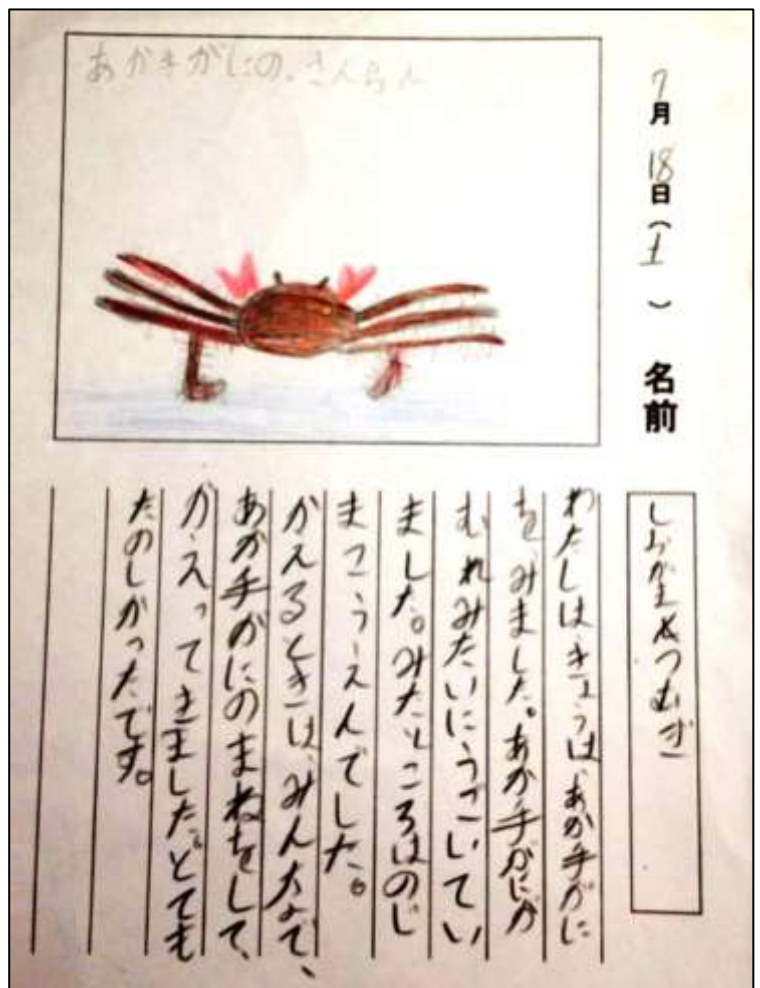 あか手がにの、さんらん
7月18日(土) 名前
しおがまえつむぎ
わたしはきょうは、あか手がに
を、みました。あか手がにが
むれみたいにうごいてい
ました。みたところはのじ
まこうえんでした。
かえるときは、みんなで、
あか手がにのまねをして、
かえってきました。とても
たのしかったです。